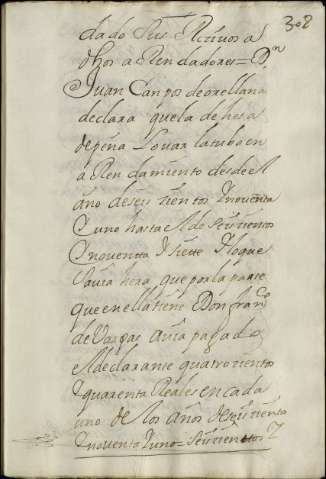 308
dado sus Rezivos a
dhos aRendadores = Dn
Juan Campos de orellana
declara que la dehesa
de peña Lovar la tubo en
aRendamiento desde el
año de seis zientos y noventa
y uno hasta el de seiszientos
y noventa y siette y lo que
Savia hera que por la parte
que en ella tiene Don franco
de Vargas avia pagado
el declarante quatrozientos
y quarenta Reales en cada
uno de los años de seiszientos
y noventa y uno = seiszientos y